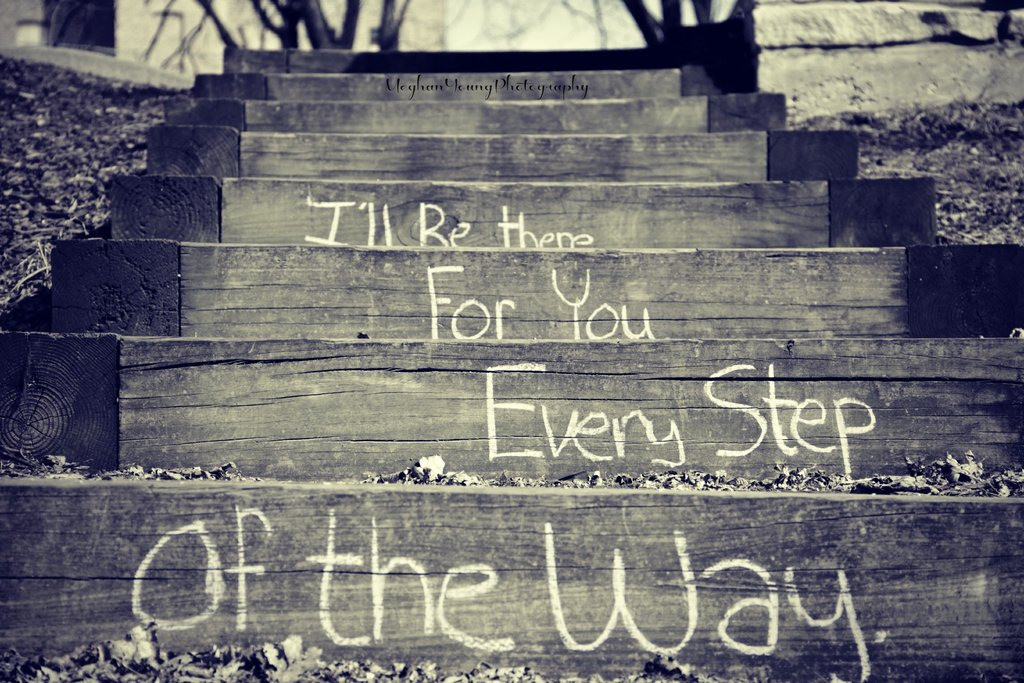 MeghanYoungPhotography
I'll Be there
For You
Every Step
Of the Way.